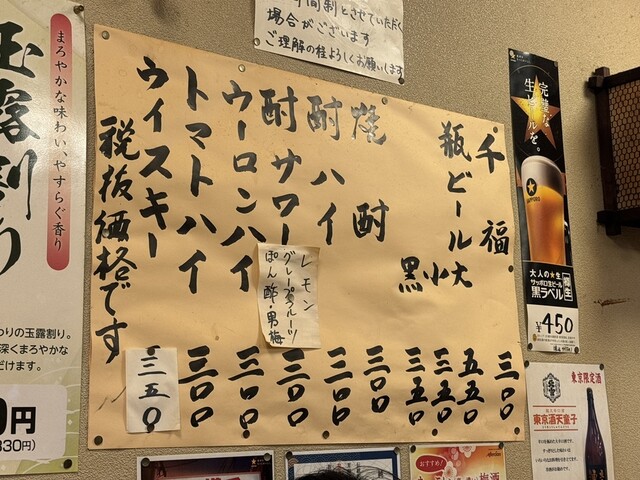 時間制とさせていただく
場合がございます
ご理解の程よろしくお願いします
千福 三〇〇
瓶ビール大 五五〇
小 三五〇
黒 三五〇
焼酎 三〇〇
酎ハイ 三〇〇
酎サワー 三〇〇
レモン
グレープフルーツ
ぽん酢・男梅
ウーロンハイ 三〇〇
トマトハイ 三〇〇
ウイスキー 三五〇
税抜価格です
玉露割り
まろやかな味わい、やすらぐ香り
わりの玉露割り。
深くまろやかな
だけます。
0円
330円)
完璧な
生ビールを。
SAPPORO
大人の★生
サッポロ生ビール
黒ラベル
樽生
¥450
東京限定酒
東京酒天童子
おすすめ!